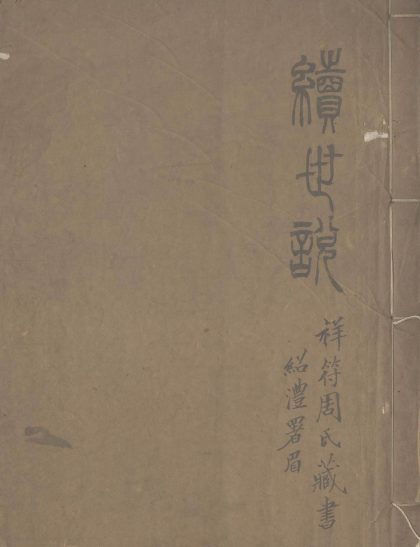 續世說
祥符周氏藏書
紹澧署眉